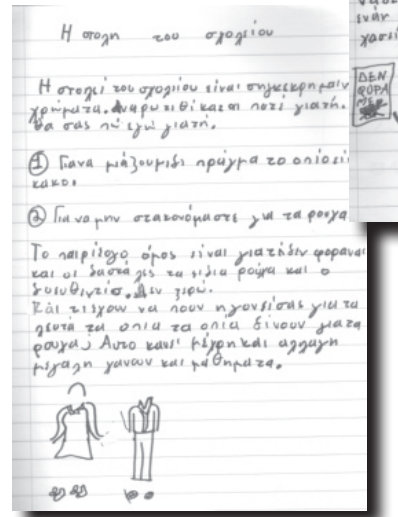 Η στολη του σχολείου
Η στολεί του σχολιίου είναι σηγκεκρημαιν
χρήματα. Αναρωτιθίκατοι ποτέ γιατή.
θα σας πώ εγώ γιατή.
① Γιανα μιάζουμιδι πράγμα το οπίο είν
κακο.
② Για να μην στακονόμαστε για τα ρουχα
Το παιρίδοξο όμος είναι γιατίδεν φοραναι
και οι δασκάλες τα ιδια ρούχα και ο
Και τι έχουν να πουν η γονείσας για τα
λευτά τα οπια τα οπία δίνουν γιατα
ρουχα; Αυτο κανι μέχρη και αλλαγή
μεγαλη χανουν και μαθηματα.
ενάν
χασεί
ΔΕΝ
ΦΟΡΑ